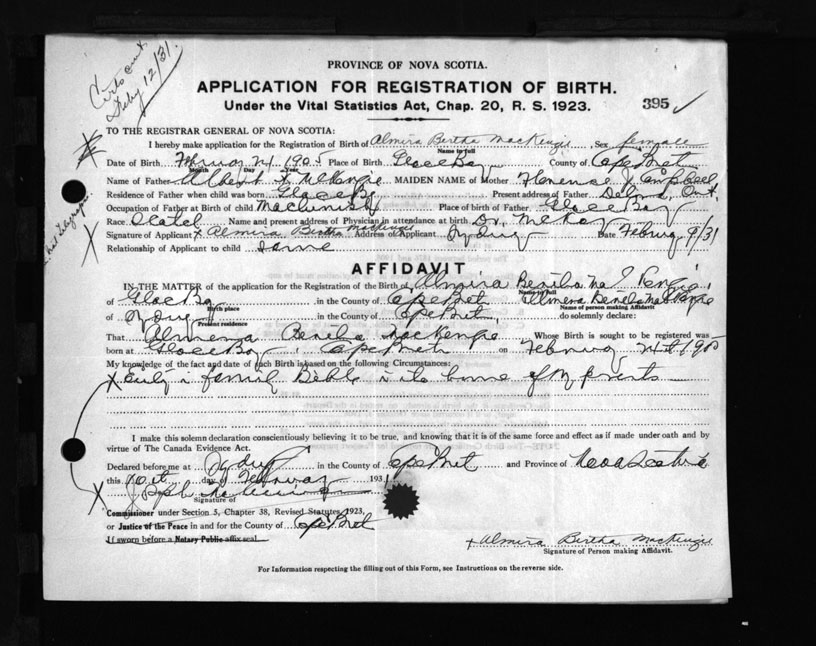 Certs out
Feby 12/31.
PROVINCE OF NOVA SCOTIA.
APPLICATION FOR REGISTRATION OF BIRTH.
Under the Vital Statistics Act, Chap. 20, R. S. 1923.
395 ✓
TO THE REGISTRAR GENERAL OF NOVA SCOTIA:
I hereby make application for the Registration of Birth of Almira Bertha MacKenzie, Sex female
Name in full
Date of Birth 1905 Place of Birth Glace Bay County of Cape Breton
Month Day Year
Name of Father Albert MAIDEN NAME of Mother Florence J Campbell
Residence of Father when child was born Glace Bay Present address of Father Ont.
Occupation of Father at Birth of child Machinist Place of birth of Father Glace Bay
Race Scotch Name and present address of Physician in attendance at birth Dr. McKay
Signature of Applicant x Almira Bertha MacKenzie Address of Applicant Sydney Date Feburg 9/31
Relationship of Applicant to child Same
AFFIDAVIT
IN THE MATTER of the application for the Registration of the Birth of Almira
Name in full
of Glace Bay in the County of Cape Breton
Birth place Name of Person making Affidavit
of Sydney in the County of Cape Breton do solemnly declare:
Present residence
That MacKenzie Whose Birth is sought to be registered was
born at Glace Bay, Cape Breton on 1905
My knowledge of the fact and date of such Birth is based on the following Circumstances:
x family Bible home of my parents
I make this solemn declaration conscientiously believing it to be true, and knowing that it is of the same force and effect as if made under oath and by
virtue of The Canada Evidence Act.
Declared before me at Sydney in the County of Cape Breton and Province of Nova Scotia
this 10th day of 1931
Signature of
Commissioner under Section 5, Chapter 38, Revised Statutes 1923,
or Justice of the Peace in and for the County of Cape Breton
If sworn before a Notary Public affix seal.
x Almira Bertha MacKenzie
Signature of Person making Affidavit.
For Information respecting the filling out of this Form, see Instructions on the reverse side.